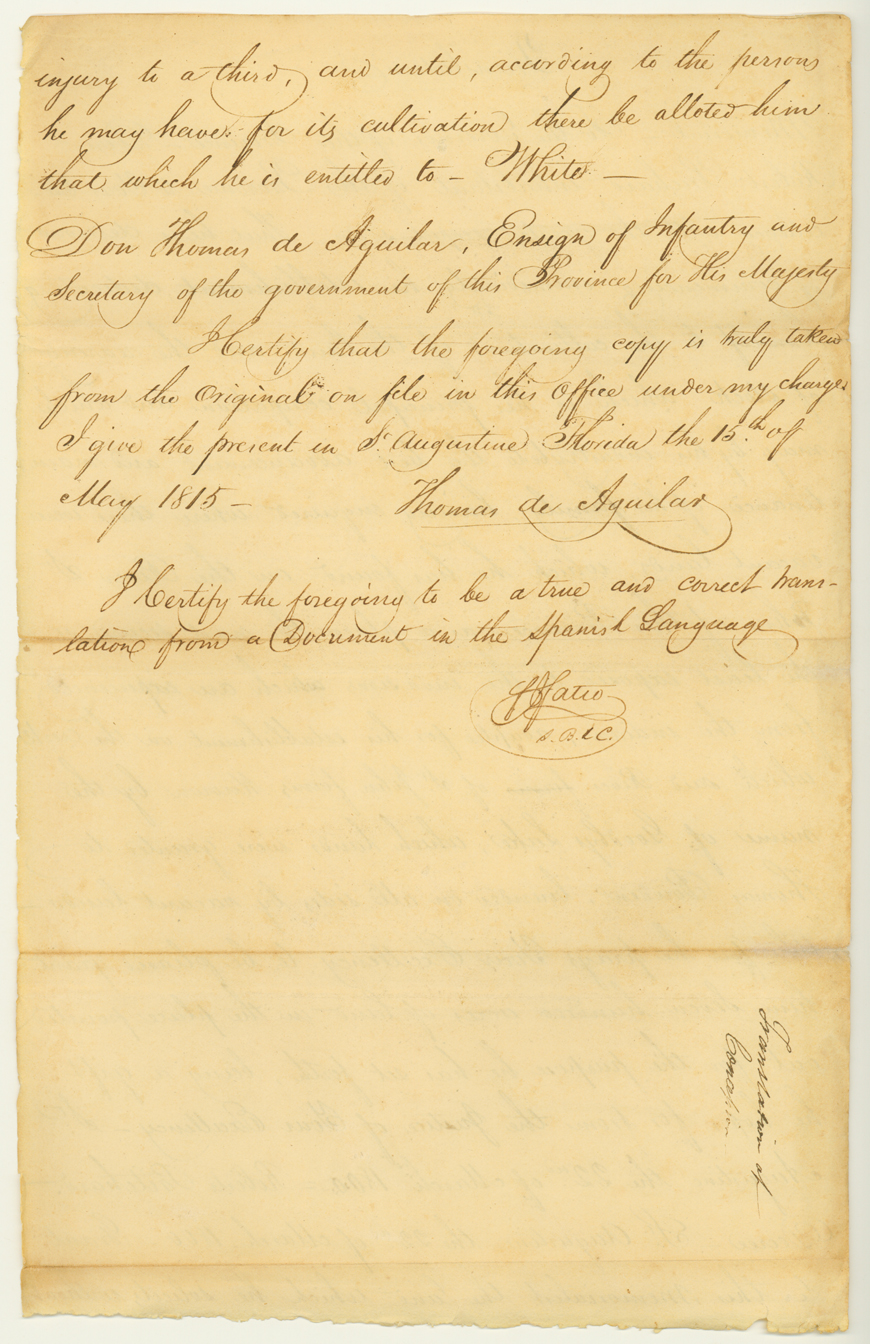 injury to a third, and until, according to the persons
he may have for its cultivation there be alloted him
that which he is entitled to – White —
Don Thomas de Aguilar, Ensign of Infantry and
Secretary of the government of this Province for His Majesty
I Certify that the foregoing copy is truly taken
from the Original on file in this Office under my charge
I give the present in St. Augustine Florida the 15th of
May 1815 –
Thomas de Aguilar
I Certify the foregoing to be a true and correct trans-
lation from a Document in the Spanish Language
FJFatio
S.B.L.C.
Translation of
Concession